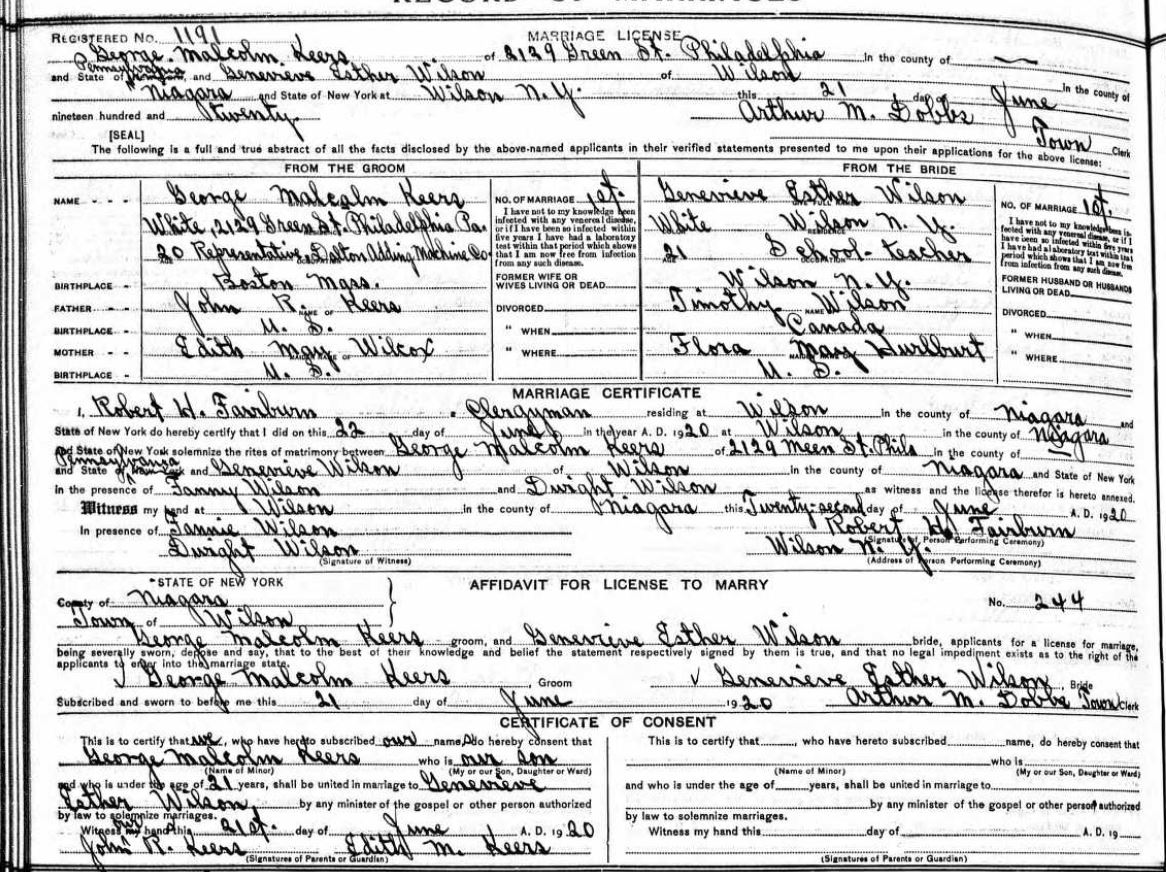 RECORD OF MARRIAGES
REGISTERED No. 1191 MARRIAGE LICENSE
George Malcolm Keers of 2129 Green St. Philadelphia in the county of
and State of Pennsylvania, and Genevieve Esther Wilson of Wilson in the county of
Niagara and State of New York at Wilson N.Y. this 21 day of June
nineteen hundred and twenty. Arthur M. Dobbs
[SEAL] Town Clerk
The following is a full and true abstract of all the facts disclosed by the above-named applicants in their verified statements presented to me upon their applications for the above license:
FROM THE GROOM FROM THE BRIDE
NAME - - - George Malcolm Keers
White, 2129 Green St. Philadelphia Pa.
20 Representative, Dalton Adding Machine Co.
BIRTHPLACE - - Boston Mass.
FATHER - - John R. Keers
NAME OF
BIRTHPLACE - - U. S.
MOTHER - - Edith May Wilcox
BIRTHPLACE - U. S.
NO. OF MARRIAGE 1st.
I have not to my knowledge been
infected with any venereal disease,
or if I have been so infected within
five years I have had a laboratory
test within that period which shows
that I am now free from infection
from any such disease.
FORMER WIFE OR
WIVES LIVING OR DEAD
DIVORCED
" WHEN
" WHERE
Genevieve Esther Wilson
White Wilson N.Y.
21 School-teacher
Wilson N.Y.
Timothy Wilson
NAME OF
Canada
Flora May Hurlburt
U. S.
NO. OF MARRIAGE 1st.
I have not to my knowledge been in-
fected with any venereal disease, or if I
have been so infected within five years
I have had a laboratory test within that
period which shows that I am now free
from infection from any such disease.
FORMER HUSBAND OR HUSBANDS
LIVING OR DEAD
DIVORCED
" WHEN
" WHERE
MARRIAGE CERTIFICATE
I, Robert H. Fairburn a Clergyman residing at Wilson in the county of Niagara and
State of New York do hereby certify that I did on this 22 day of June in the year A. D. 1920 at Wilson in the county of Niagara
and State of New York solemnize the rites of matrimony between George Malcolm Keers of 2129 Meen St. Phila in the county of
Pennsylvania
and State of New York and Genevieve Wilson of Wilson in the county of Niagara and State of New York
in the presence of Fanny Wilson and Dwight Wilson as witness and the license therefor is hereto annexed.
Witness my hand at Wilson in the county of Niagara this Twenty-second day of June A. D. 1920
In presence of Fannie Wilson Robert H. Fairburn
(Signature of Person Performing Ceremony)
Dwight Wilson Wilson N. Y.
(Signature of Witness) (Address of Person Performing Ceremony)
STATE OF NEW YORK AFFIDAVIT FOR LICENSE TO MARRY
County of Niagara No. 244
Town of Wilson
George Malcolm Keers groom, and Genevieve Esther Wilson bride, applicants for a license for marriage,
being severally sworn, depose and say, that to the best of their knowledge and belief the statement respectively signed by them is true, and that no legal impediment exists as to the right of the
applicants to enter into the marriage state.
√ George Malcolm Keers, Groom √ Genevieve Esther Wilson, Bride
Subscribed and sworn to before me this 21 day of June 1920 Arthur M. Dobbs Town Clerk
CERTIFICATE OF CONSENT
This is to certify that we, who have hereto subscribed our names, do hereby consent that
George Malcolm Keers who is our son
(Name of Minor) (My or our Son, Daughter or Ward)
and who is under the age of 21 years, shall be united in marriage to Genevieve
Esther Wilson, by any minister of the gospel or other person authorized
by law to solemnize marriages.
Witness my our hand this 21st. day of June A. D. 1920
John R. Keers Edith M. Keers
(Signatures of Parents or Guardian)
This is to certify that , who have hereto subscribed name, do hereby consent that
who is
(Name of Minor) (My or our Son, Daughter or Ward)
and who is under the age of years, shall be united in marriage to
by any minister of the gospel or other person authorized
by law to solemnize marriages.
Witness my hand this day of A. D. 19
(Signatures of Parents or Guardian)